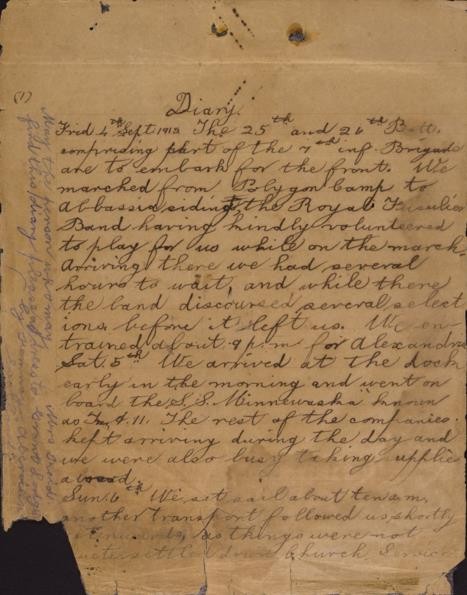 (1)
Diary.
Frid 4th Sept. 1915 The 25th and 26th Batt.
comprising part of the 7th inf. Brigade
are to embark for the front. We
marched from Polygon Camp to
Abbassia siding, the Royal Fusilier
Band having kindly volunteered
to play for us while on the march.
Arriving there we had several
hours to wait, and while there
the band discoursed several select
ions before it left us. We en-
trained about 9 p.m. for Alexandria
Sat 5th We arrived at the dock
early in the morning and went on
board the S.S. Minnewaska known
as 11. The rest of the companies
kept arriving during the day and
we were also busy taking supplies
aboard.
Sun 6th We set sail about ten a.m.
another transport followed us shortly
as things were not
settled down Church Service
May the person who may
find this Diary please